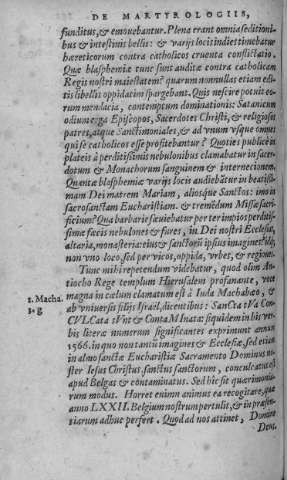 DE MARTYROLOGIIS,
funditus, & emouebantur. Plena erant omnia seditioni-
bus & intestinis bellis: & varijs locis indies tinebatur
hæreticorum contra catholicos cruenta conflictatio.
Quæ blasphemiæ tunc sunt auditæ contra catholicam
Regis nostri maiestatem? quarum nonnullas etiam edi-
tis libellis oppidatim spargebant. Quis nescire potuit eo-
rum mendacia, contemptum dominationis: Satanicum
odium erga Episcopos, Sacerdotes Christi, & religiosos
patres, atque Sanctimoniales, & ad vnum vsque omnes
qui se catholicos esse profitebantur? Quoties publicè in
plateis à perditissimis nebulonibus clamabatur in sacer-
dotum & Monachorum sanguinem & internecionem.
Quantæ blasphemiæ varijs locis audiebãtur in beatissi-
mam Dei matrem Mariam, aliosque Sanctos: imo in
sacrosanctam Eucharistiam & tremẽdum Missæ sacri-
ficium? Qua barbarie sæuiebatur per ter impios perditis-
simæ fæcis nebulones & fures, in Dei nostri Ecclesias,
altaria, monasteria: eius & sanctorũ ipsius imagines: idq́,
non vno loco, sed per vicos, oppida, vrbes, & regiones.
Tunc mihi repetendum videbatur, quod olim An-
tiocho Rege templum Hierusalem profanante, voce
1. Macha. magna in cælum clamatum est à Iuda Machabæo, &
3. g ab vniuersis filijs Israël, dicentibus: SanCta tVa Con-
CVLCata sVnt & ContaMInata: siquidem in his ver-
bis literæ numerum significantes exprimunt annum
1566. in quo non tantũ imagines & Ecclesiæ, sed etiam
in almo sanctæ Eucharistiæ Sacramento Dominus no-
ster Iesus Christus sanctus sanctorum, conculcatus est
apud Belgas & contaminatus. Sed hic sit quærimonia-
rum modus. Horret enim animus ea recogitare, quæ
anno LXXII. Belgium nostrum pertulit, & in præsen-
tiarum adhuc perfert. Quod ad nos attinet, Domine
Deus,